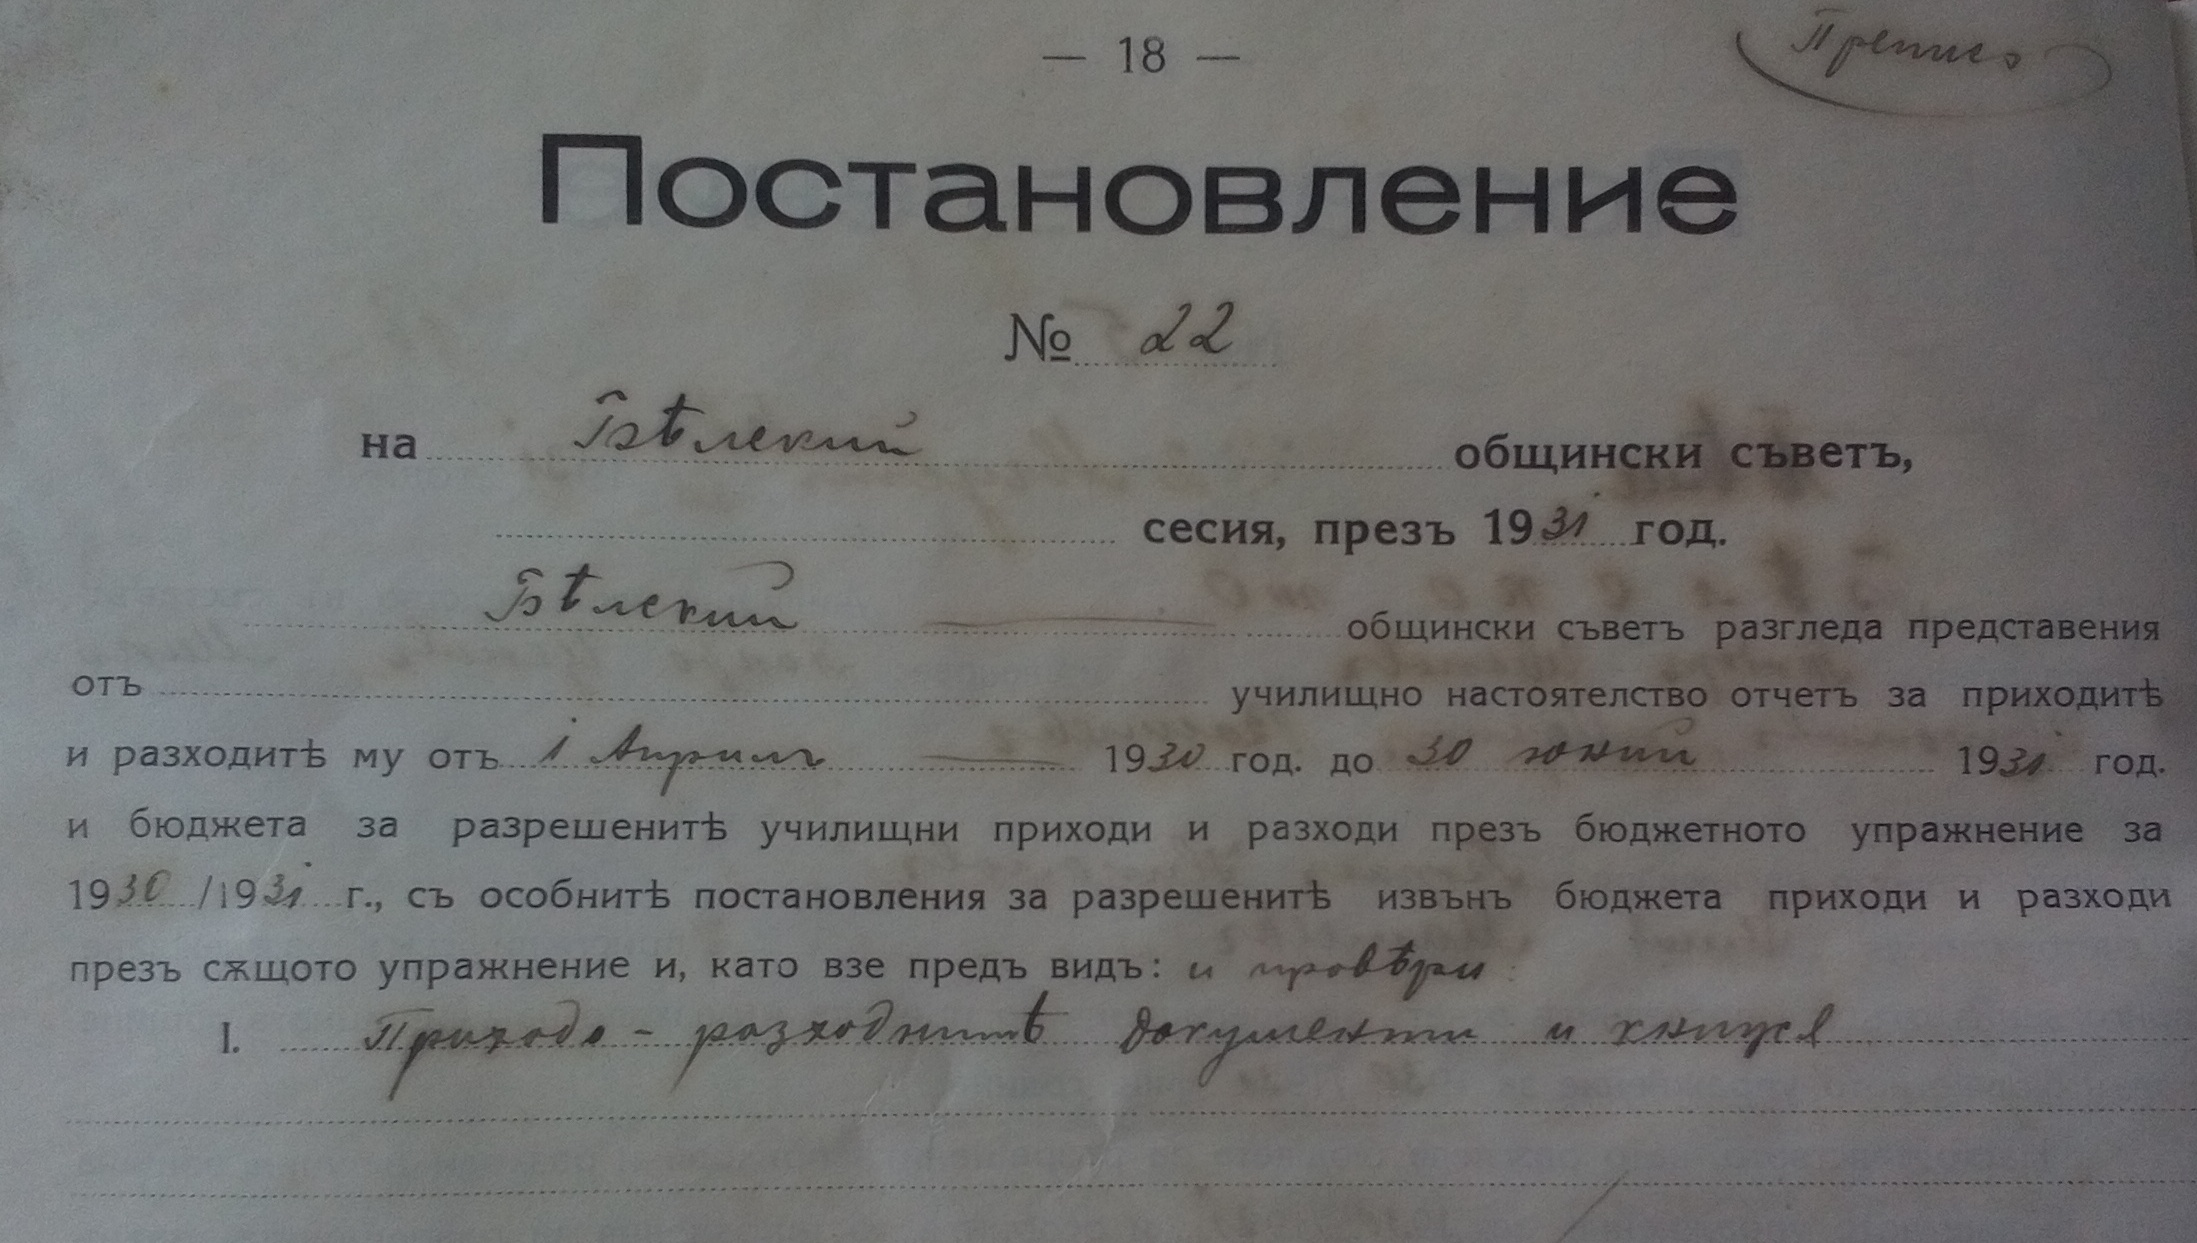 — 18 —
Преписъ
Постановление
№ 22
на Бѣлский общински съветъ,
сесия, презъ 1931 год.
Бѣлский — общински съветъ разгледа представения
отъ училищно настоятелство отчетъ за приходитѣ
и разходитѣ му отъ 1 Априлъ — 1930 год. до 30 юний 1931 год.
и бюджета за разрешенитѣ училищни приходи и разходи презъ бюджетното упражнение за
1930/1931 г., съ особнитѣ постановления за разрешенитѣ извънъ бюджета приходи и разходи
презъ сѫщото упражнение и, като взе предъ видъ: и провѣри:
I. Приходо-разходнитѣ документи и книжа